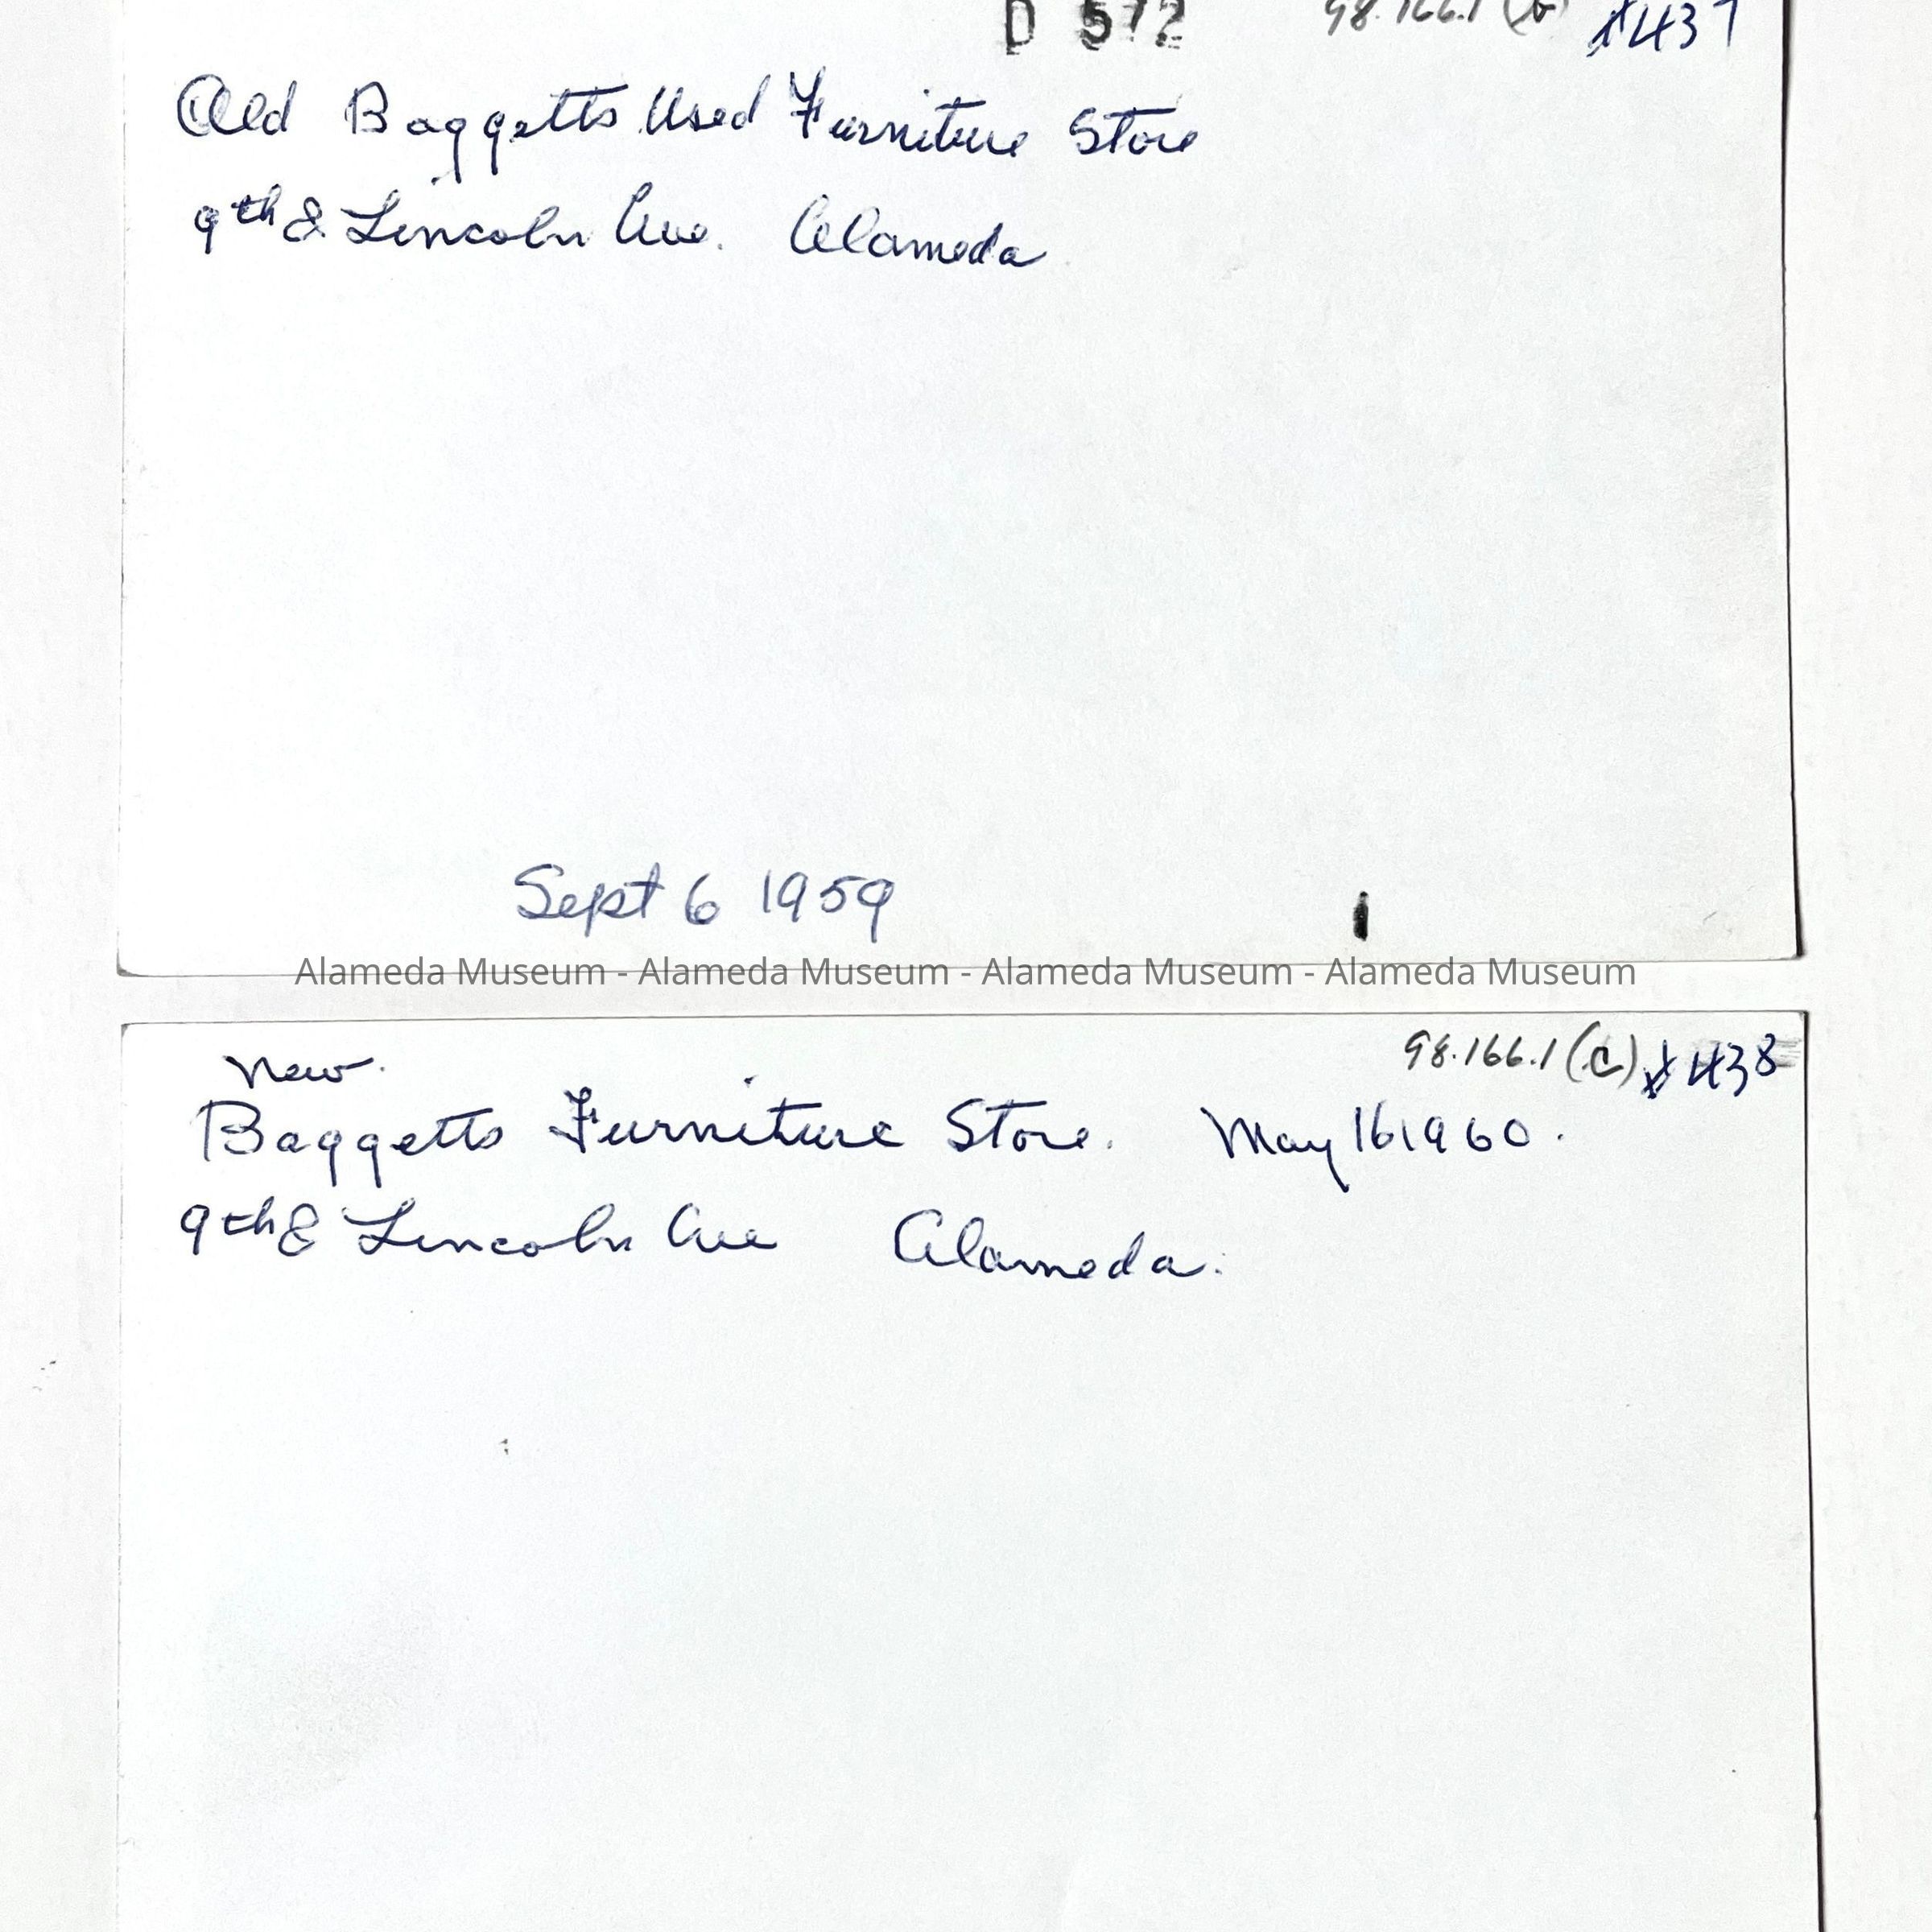 D 572 98.166.1 (b) #437
Old Baggetts Used Furniture Store
9th & Lincoln Ave. Alameda
Sept 6 1959
Alameda Museum - Alameda Museum - Alameda Museum - Alameda Museum
98.166.1 (c) #438
New.
Baggetts Furniture Store. May 16 1960.
9th & Lincoln Ave Alameda.